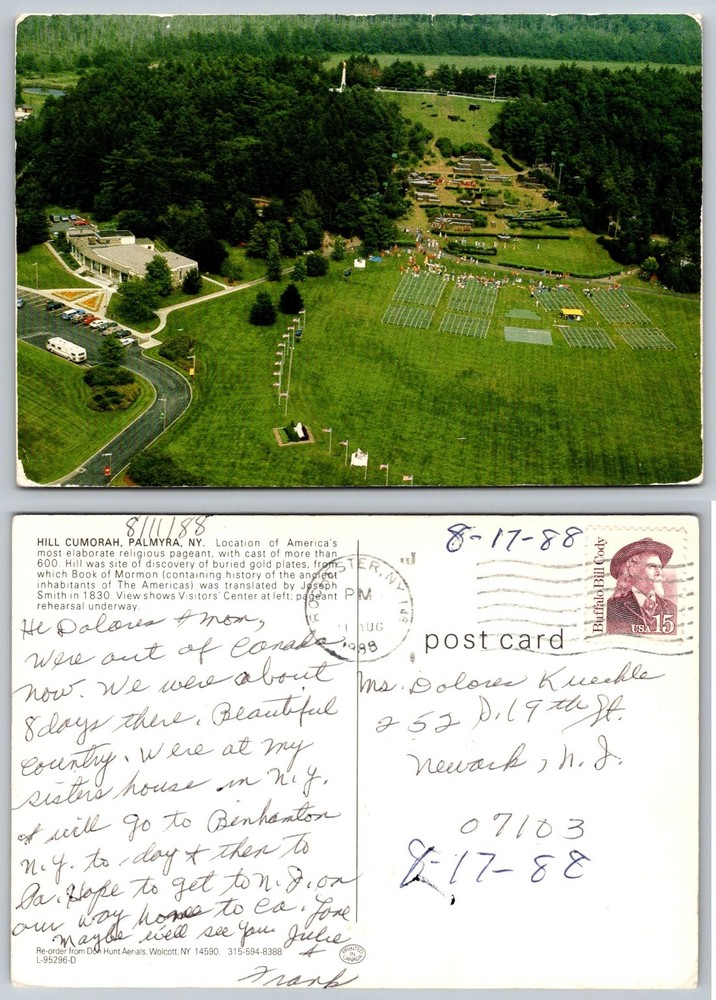 8/11/88
HILL CUMORAH, PALMYRA, NY. Location of America's
most elaborate religious pageant, with cast of more than
600. Hill was site of discovery of buried gold plates, from
which Book of Mormon (containing history of the ancient
inhabitants of The Americas) was translated by Joseph
Smith in 1830. View shows Visitors' Center at left; pageant
rehearsal underway.
Hi Dolores & Mom,
Were out of Canada
now. We were about
8 days there. Beautiful
Country. Were at my
sisters house in N.Y.
I will go to Binhamton
N.Y. to-day & then to
Pa. Hope to get to N.J. on
our way home to Ca. Love
Maybe we'll see you Julie
&
Frank
Re-order from Don Hunt Aerials, Wolcott, NY 14590. 315-594-8388
L-95296-D
PRINTED IN CANADA
8-17-88
ROCHESTER, NY
PM
11 AUG
1988
Buffalo Bill Cody
USA 15
post card
Ms. Dolores Kueckle
252 S. 19th St.
Newark, N.J.
07103
8-17-88